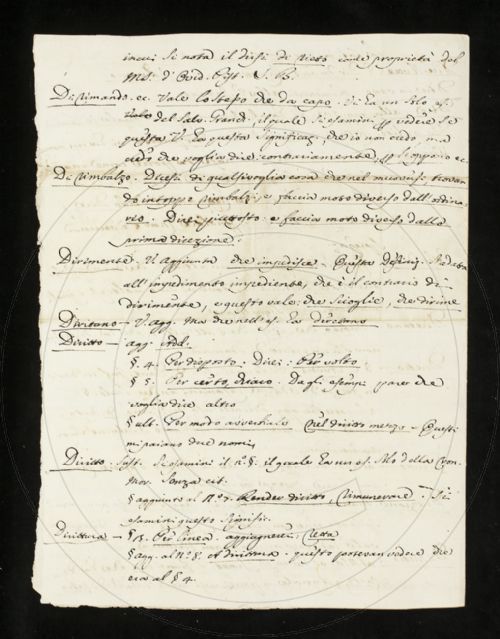 in cui si nota il dirsi di pieto come proprietà del
Di Rimando. ec. Vale lo stesso che da capo. Vi ha un solo es.
del Salv. Grand. il quale si esamini p vedere se
questa V. ha questa significaz. che io non credo ma
credo che voglia dire contrariamente, p opposto ec.
Di Rimbalzo. Dicesi di qualsivoglia cosa che nel muoversi trovan
do intoppo rimbalzi, e faccia moto diverso dall'ordina
rio. Direi piuttosto e faccia moto diverso dalla
prima direzione.
Dirimente. V. Aggiunta che impedisce - Questa Definiz. è adatta
all'impedimento impediente, che è il contrario di
dirimente, e questo vale: che scioglie, che dirime
V. agg. Ma che nell'es. ha
Diritto - agg. add.
§. 4. Per disposto. Direi: Per volto
§ 5. Per certo, chiaro. Dagli esempi pare che
voglia dire altro
§ ult. Per modo avverbiale Nel diritto mezzo - Questi
mi paiono due nomi,
Diritto. Sust. Si esamini il n.° §. il quale ha un es. solo della
Mor. Senza cit.
§ aggiunto al N.° 7. Render diritto, Rimunerare. Si
esamini questo signific.
Dirittura - § 13. Per linea. aggiugnerei; Retta
§ agg. al N.° 8. A Dirittura. questo potevan vedere che
era al § 4.